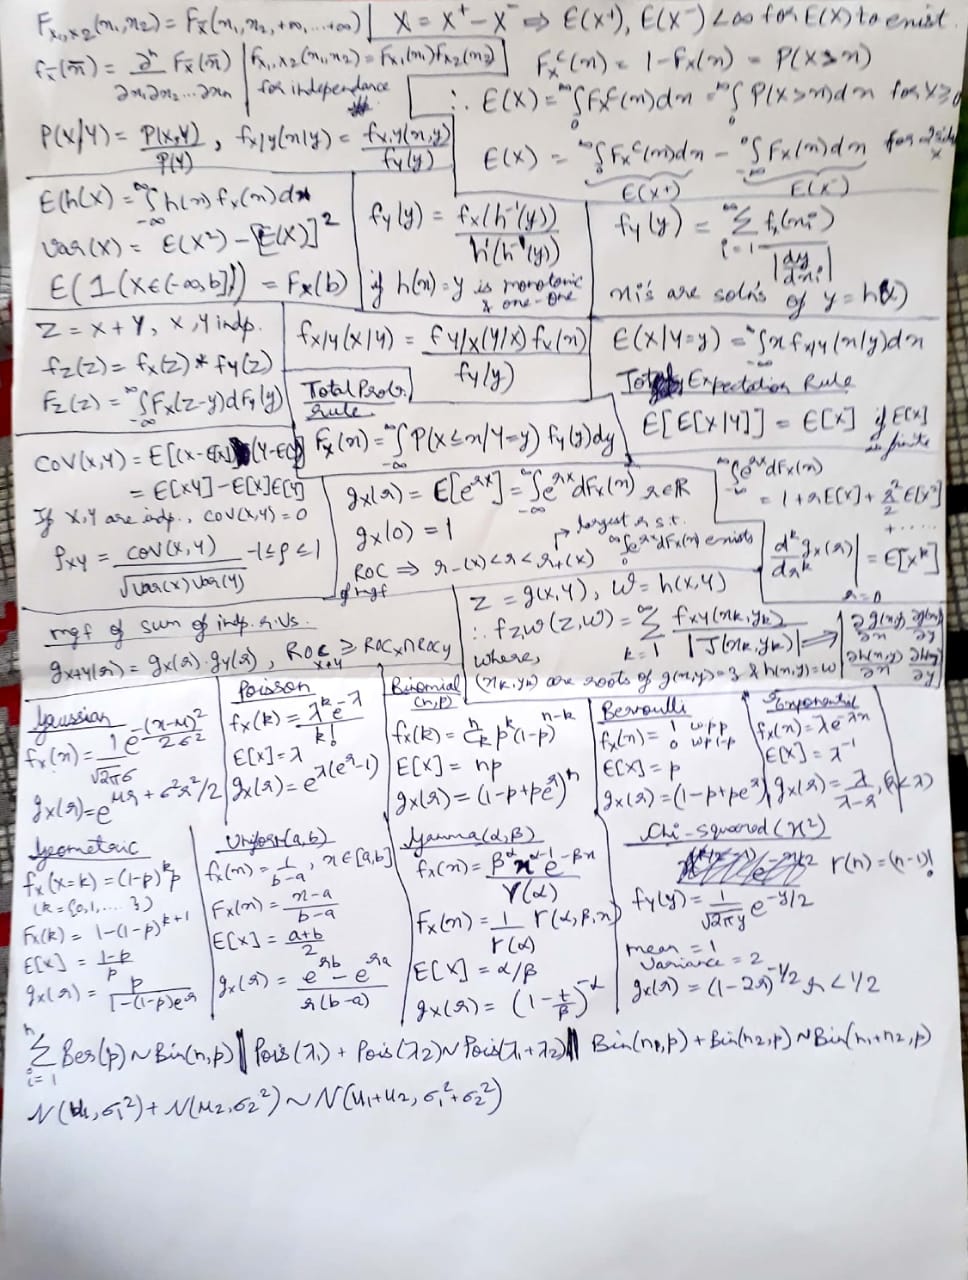 F_{X1,X2}(x1,x2) = F_X̄(x1, x2, +∞, ... +∞) | X = X⁺ - X⁻ ⇒ E(X⁺), E(X⁻) < ∞ for E(X) to exist.
f_X̄(x̄) = ∂ⁿ/∂x1∂x2...∂xn F_X̄(x̄) | f_{X1,X2}(x1,x2) = F_{X1}(x1) F_{X2}(x2) for independence
F_X^c(x) = 1 - F_X(x) = P(X>x)
∴ E(X) = ∫_0^∞ F_X^c(x)dx = ∫_0^∞ P(X>x)dx for X≥0
P(X/Y) = P(X,Y)/P(Y), f_{X/Y}(x/y) = f_{X,Y}(x,y)/f_Y(y)
E(X) = ∫_0^∞ F_X^c(x)dx - ∫_{-∞}^0 F_X(x)dx for
E(X⁺) E(X⁻)
E(h(X)) = ∫_{-∞}^∞ h(x) f_X(x) dx
Var(X) = E(X²) - [E(X)]²
E(1(X∈(-∞,b])) = F_X(b)
f_Y(y) = f_X(h⁻¹(y))/h'(h⁻¹(y))
if h(x)=y is monotonic & one-one
f_Y(y) = Σ_{i=1}^∞ f(xi)/|dy/dxi|
xi's are solns of y = h(x)
Z = X+Y, X,Y indp.
f_Z(z) = f_X(z) * f_Y(z)
F_Z(z) = ∫_{-∞}^∞ F_X(z-y)dF_Y(y)
f_{X/Y}(X/Y) = f_{Y/X}(Y/X) f_X(x)/f_Y(y)
Total Prob. rule
F_X(x) = ∫_{-∞}^∞ P(X≤x/Y=y) f_Y(y)dy
E(X/Y=y) = ∫_{-∞}^∞ x f_{X/Y}(x/y)dx
Total Expectation Rule
E[E[X/Y]] = E[X] if E[X] is finite
COV(X,Y) = E[(X-E[X])(Y-E[Y])]
= E[XY] - E[X]E[Y]
If X,Y are indp., COV(X,Y) = 0
ρ_XY = COV(X,Y)/√(Var(X)Var(Y)) -1≤ρ≤1
g_X(r) = E[e^{rX}] = ∫_{-∞}^∞ e^{rx} dF_X(x) r∈R
g_X(0) = 1
ROC of mgf ⇒ r₋(X) < r < r₊(X)
→ largest r s.t. ∫_0^∞ e^{rx}dF_X(x) exists
∫_{-∞}^∞ e^{rx}dF_X(x)
= 1 + rE[X] + r²/2 E[X²]
+ .....
d^k g_X(r)/dr^k |_{r=0} = E[X^k]
mgf of sum of indp. r.vs.
g_{X+Y}(r) = g_X(r).g_Y(r), ROC_{X+Y} ≥ ROC_X ∩ ROC_Y
Z = g(X,Y), W = h(X,Y)
∴ f_{ZW}(z,w) = Σ_{k=1}^∞ f_{XY}(xk,yk)/|J(xk,yk)| ⇒ |∂g(x,y)/∂x ∂g(x,y)/∂y
∂h(x,y)/∂x ∂h(x,y)/∂y|
where,
(xk,yk) are roots of g(x,y)=z & h(x,y)=w
Gaussian
f_X(x) = 1/(√2πσ) e^{-(x-μ)²/2σ²}
g_X(r) = e^{μr + σ²r²/2}
Poisson
f_X(k) = λ^k e^{-λ}/k!
E[X] = λ
g_X(r) = e^{λ(e^r-1)}
Binomial (n,p)
f_X(k) = ⁿC_k p^k (1-p)^{n-k}
E[X] = np
g_X(r) = (1-p+pe^r)^n
Bernoulli
f_X(x) = 1 w p p
0 w p 1-p
E[X] = p
g_X(r) = (1-p+pe^r)
Exponential
f_X(x) = λe^{-λx}
E[X] = λ⁻¹
g_X(r) = λ/(λ-r), (r<λ)
Geometric
f_X(X=k) = (1-p)^k p
(k = {0,1,....})
F_X(k) = 1-(1-p)^{k+1}
E[X] = (1-p)/p
g_X(r) = p/(1-(1-p)e^r)
Uniform(a,b)
f_X(x) = 1/(b-a), x∈[a,b]
F_X(x) = (x-a)/(b-a)
E[X] = (a+b)/2
g_X(r) = (e^{rb} - e^{ra})/(r(b-a))
Gamma(α,β)
f_X(x) = β^α x^{α-1} e^{-βx}/γ(α)
F_X(x) = 1/Γ(α) Γ(α,β,x)
E[X] = α/β
g_X(r) = (1-t/β)^{-α}
Chi-squared (x²)
Γ(n) = (n-1)!
f_Y(y) = 1/√(2πy) e^{-y/2}
mean = 1
Variance = 2
g_X(r) = (1-2r)^{-1/2} r < 1/2
Σ_{i=1}^n Ber(p) ~ Bin(n,p) || Pois(λ1) + Pois(λ2) ~ Pois(λ1+λ2) || Bin(n1,p) + Bin(n2,p) ~ Bin(n1+n2,p)
N(μ1,σ1²) + N(μ2,σ2²) ~ N(μ1+μ2, σ1²+σ2²)